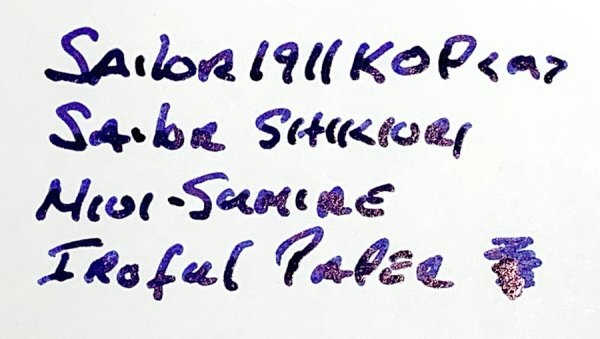 SAILOR 1911 KOP
SAILOR SHIKIORI
NIOI-SUMIRE
IROFUL PAPER